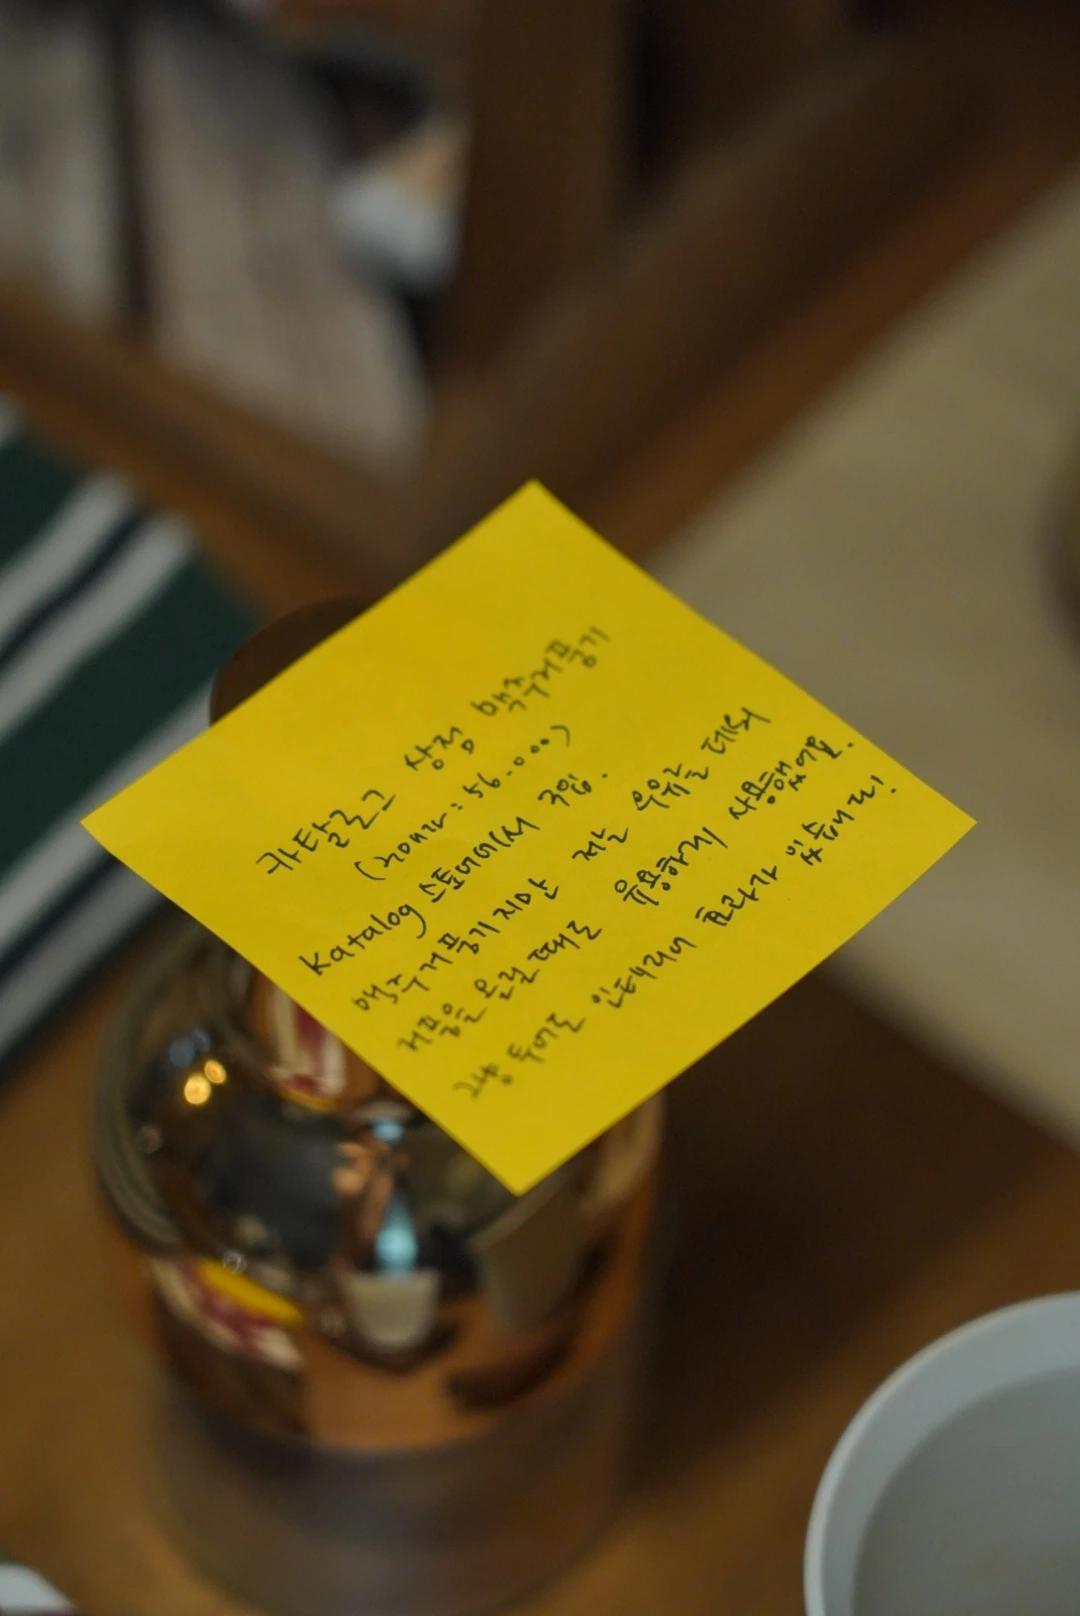 카탈로그 상점 맥주거품기
(구매가 : 56.000)
Katalog 스토어에서 구입.
맥주거품기지만 저는 우유를 데워
거품을 올릴때로 유용하게 사용했어요.
그냥 두어도 인테리어 효과가 있습니다!